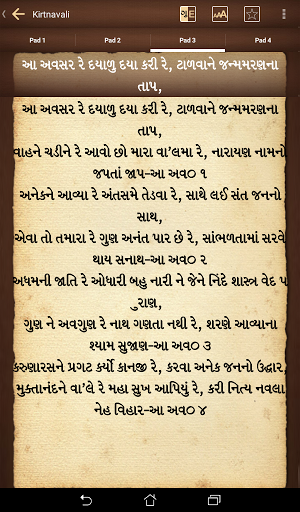 Kirtnavali
ગ E AAA
Pad 1 Pad 2 Pad 3 Pad 4
આ અવસર રે દયાળુ દયા કરી રે, ટાળવાને જન્મમરણના
તાપ,
આ અવસર રે દયાળુ દયા કરી રે, ટાળવાને જન્મમરણના
તાપ,
વાહને ચડીને રે આવો છો મારા વા'લમા રે, નારાયણ નામનો
જપતાં જાપ-આ અવ૦ ૧
અનેકને આવ્યા રે અંતસમે તેડવા રે, સાથે લઈ સંત જનનો
સાથ,
એવા તો તમારા રે ગુણ અનંત પાર છે રે, સાંભળતામાં સરવે
થાય સનાથ-આ અવ૦ ૨
અધમની જાતિ રે ઓધારી બહુ નારી ને જેને નિંદે શાસ્ત્ર વેદ પ
ુરાણ,
ગુણ ને અવગુણ રે નાથ ગણતા નથી રે, શરણે આવ્યાના
શ્યામ સુજાણ-આ અવ૦ ૩
કરુણારસને પ્રગટ કર્યો કાનજી રે, કરવા અનેક જનનો ઉદ્ધાર,
મુક્તાનંદને વા'લે રે મહા સુખ આપિયું રે, કરી નિત્ય નવલા
નેહ વિહાર-આ અવ૦ ૪